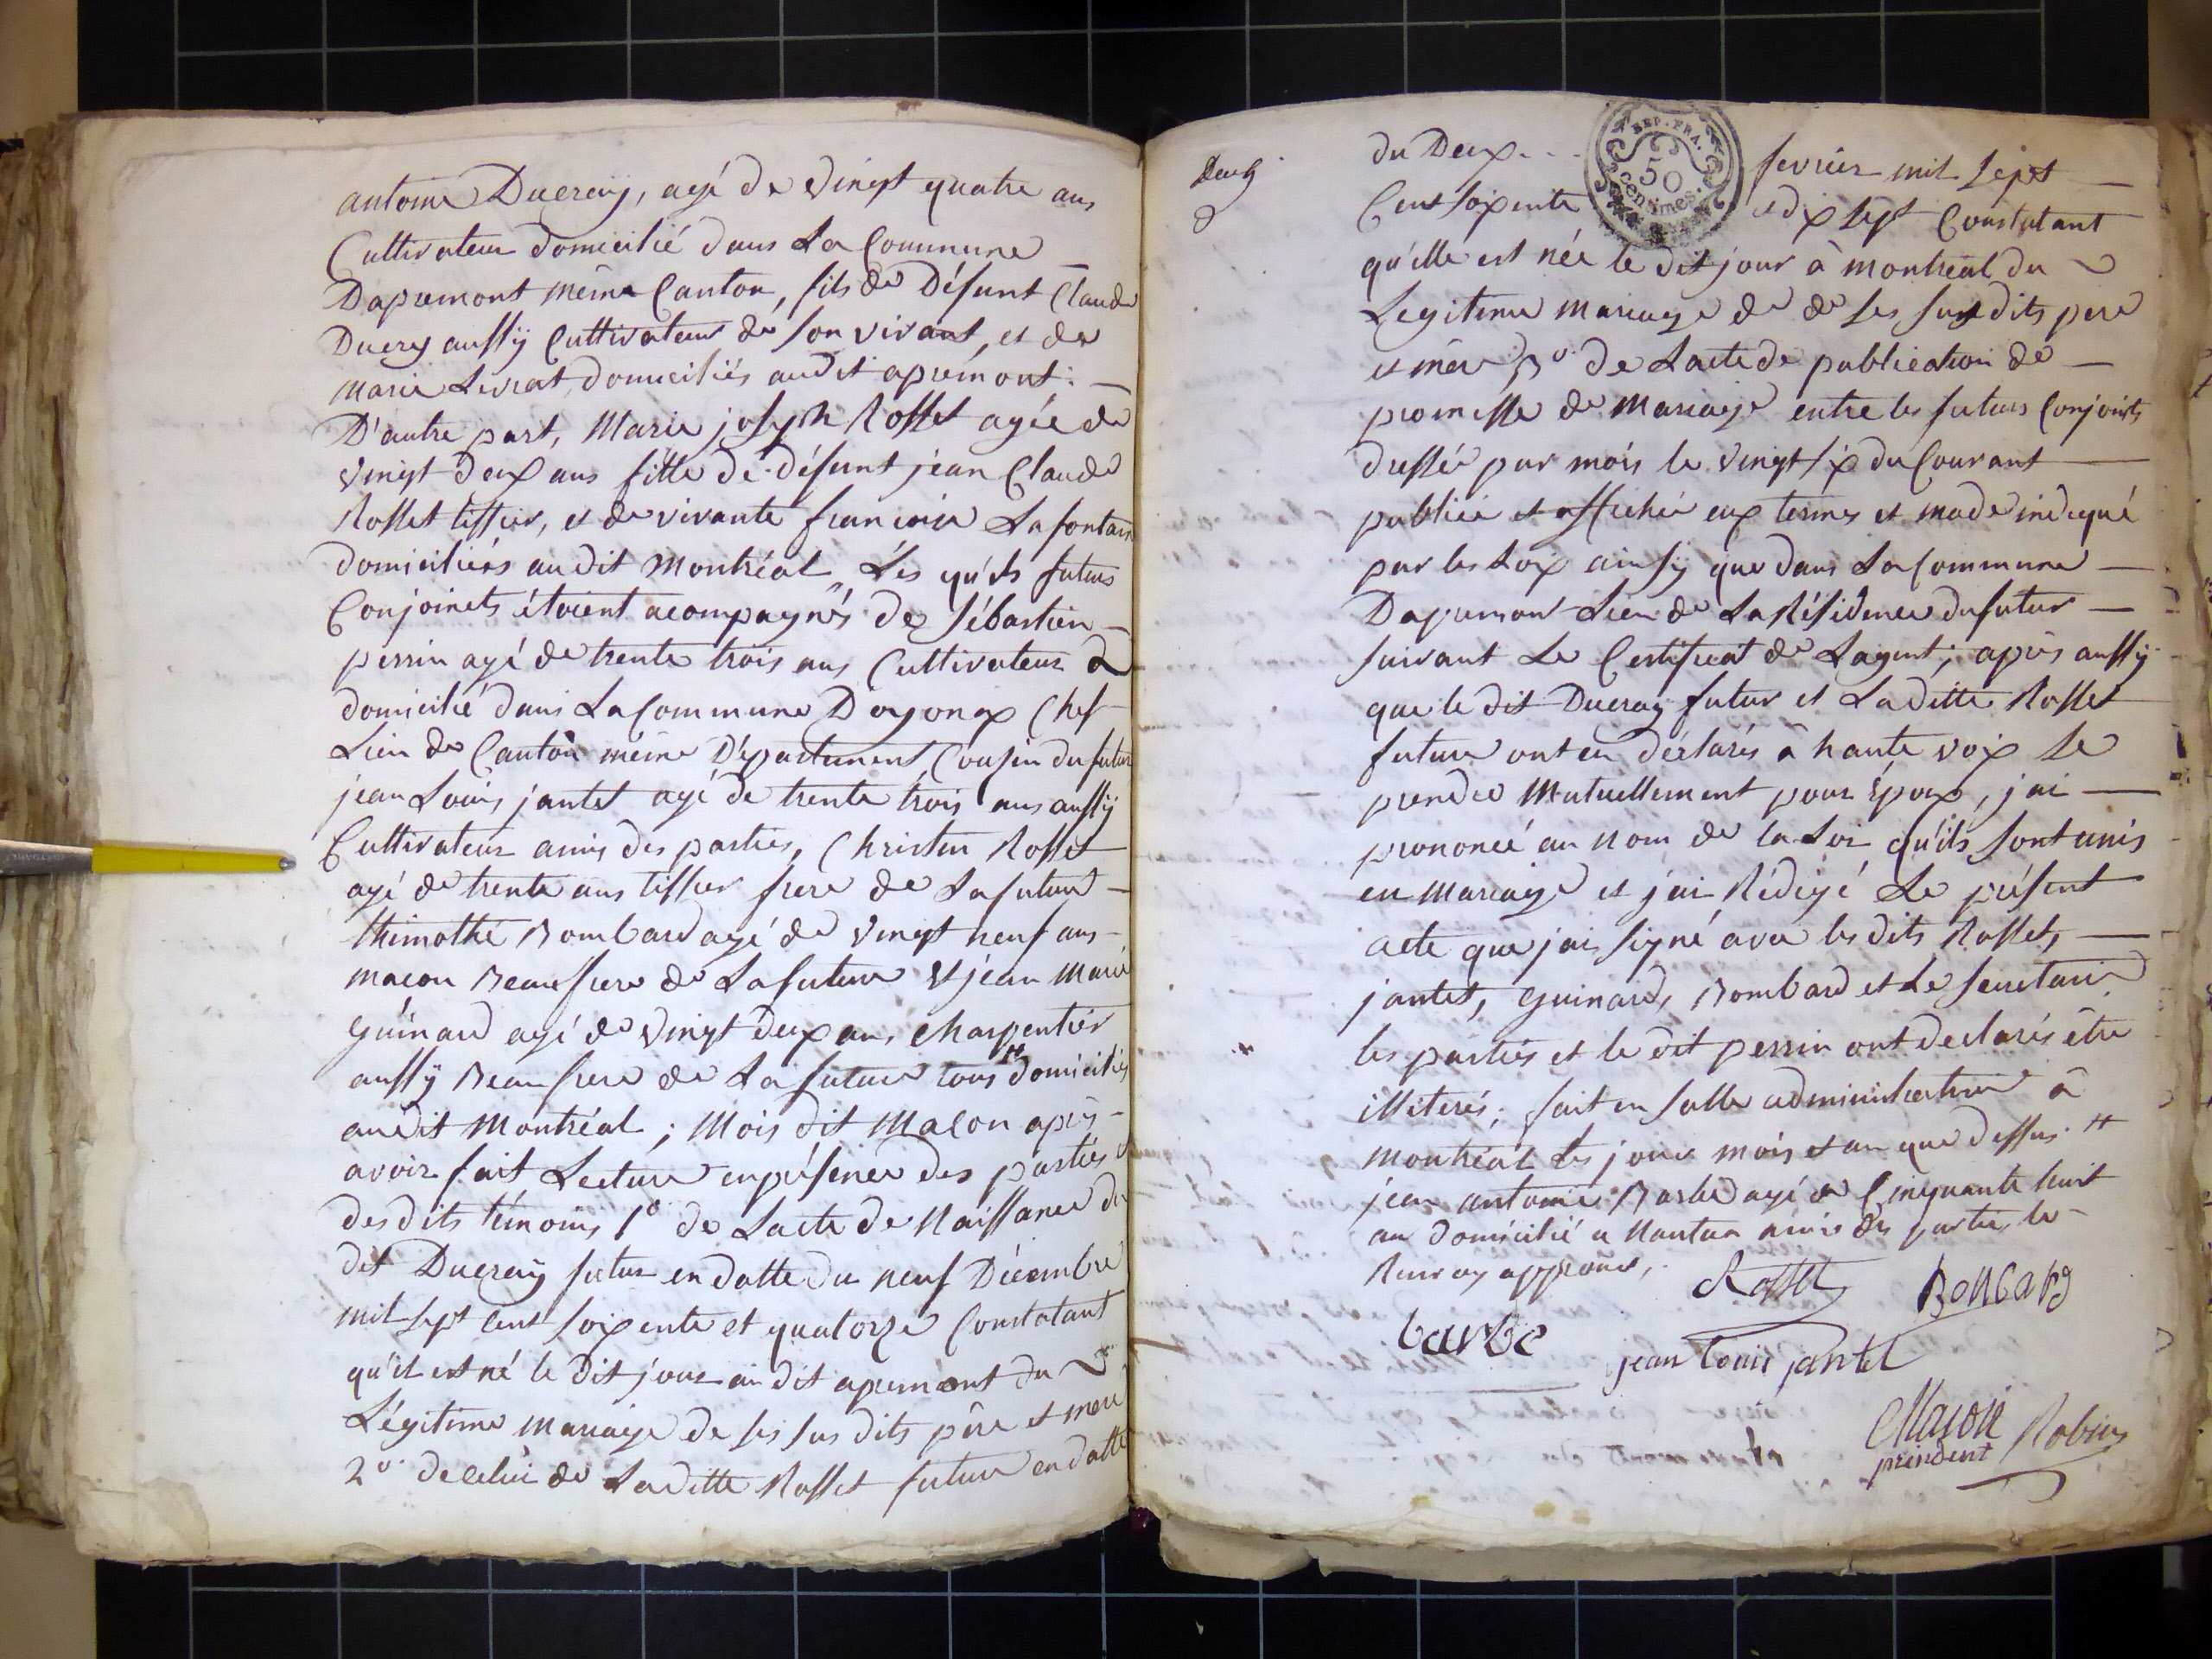 antoine Ducray, agé de vingt quatre ans
Cultivateur domicilié dans La Commune
Dapremont même Canton, fils de Défunt Claude
Ducray aussÿ Cultivateur de son vivant, et de
marie Livrat domiciliés audit apremont. —
D'autre part, Marie joseph Rosset agée de
vingt deux ans fille de défunt jean Claude
Rosset tissier, et de vivante francoise Lafontain
domiciliés audit Montréal, Lés qu'els futurs
Conjoincts étoient acompagnés de Sébastien —
perrin agé de trente trois ans Cultivateur
domicilié dans La Commune Doyonax Chef
Lieu de Canton même Département Cousin du futur
jean Louis jantet agé de trente trois ans aussÿ
Cultivateur amis des parties, Christin Rosset
agé de trente ans tissier frere de La future —
thimothé Bombard agé de vingt neuf ans —
macon Beaufrere de La future et jean Marie
Guinard agé de vingt deux ans charpentier
aussÿ Beaufrere de La future tous # domiciliés
audit Montréal ; Mois dit Macon après —
avoir fait Lecture enprésence des parties et
desdits témoins 1° de Lacte de Naissance du
dit Ducraÿ futur en datte du neuf Décembre
mil sept cent soixente et quatorze Constatant
qu'il est né le dit jour au dit apremont du
Légitime mariage de ses sus dits père et mere
2° de celui de La ditte Rosset future en datte
du Deux . . . fevrier mil sept —
Cent soixente et dix sept Constatant
qu'elle est née le dit jour à montréal du
Legitime mariage de de ses susdits pere
et mère, 3° de Lacte de publication de —
promesse de mariage entre les futurs Conjoints
dressée par mois le vingt six du Courant —
publiée et affichée eux termes et mode indiqué
par les Loix ainsÿ que dans La Commune —
Dapremont Lieu de La Résidence du futur —
suivant Le Certificat de Lagent ; après aussÿ
que le dit Ducray futur et La ditte Rosset
future ont eu déclarés à haute voix se
prendre Mutuellement pour Époux, jai —
prononcé au nom de la Loi qu'ils sont unis
en mariage et j'ai Rédigé Le présent
acte que jai signé avec les dits Rosset, —
jantet, Guinard, Bombard et Le secretaire
les parties et le dit perrin ont declarés être
illiterés ; fait en salle administrative à
montréal Les jour mois et an que dessus. #
jean antoine Barbe agé de Cinquante huit
an domicilié a Nantua amis des partie le
Renvoy approuvé,
Rosset BONBARD
barbe
jean Louis jantet
Macon Robin
president
REP. FRA.
50
centimes